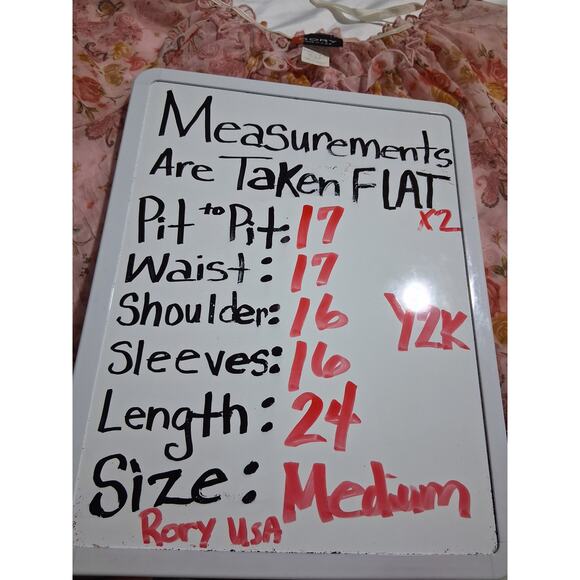 RORY
Measurements
Are Taken FLAT
x2
Pit to Pit: 17
Waist: 17
Shoulder: 16
Y2K
Sleeves: 16
Length: 24
Size: Medium
Rory USA